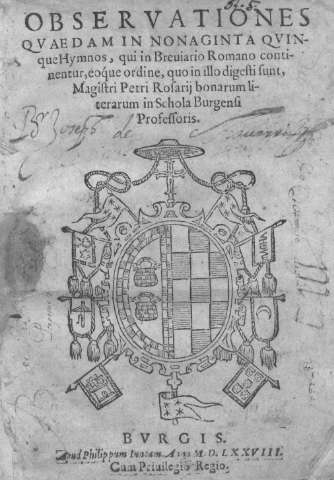 OBSERVATIONES
QVAEDAM IN NONAGINTA QVIN-
que Hymnos, qui in Breuiario Romano conti-
nentur, eoque ordine, quo in illo digesti sunt,
Magistri Petri Rosarij bonarum li-
terarum in Schola Burgensi
Professoris.
Joseph de
BVRGIS.
Apud Philippum Iuntam. M. D. LXXVIII.
Cum Priuilegio Regio.